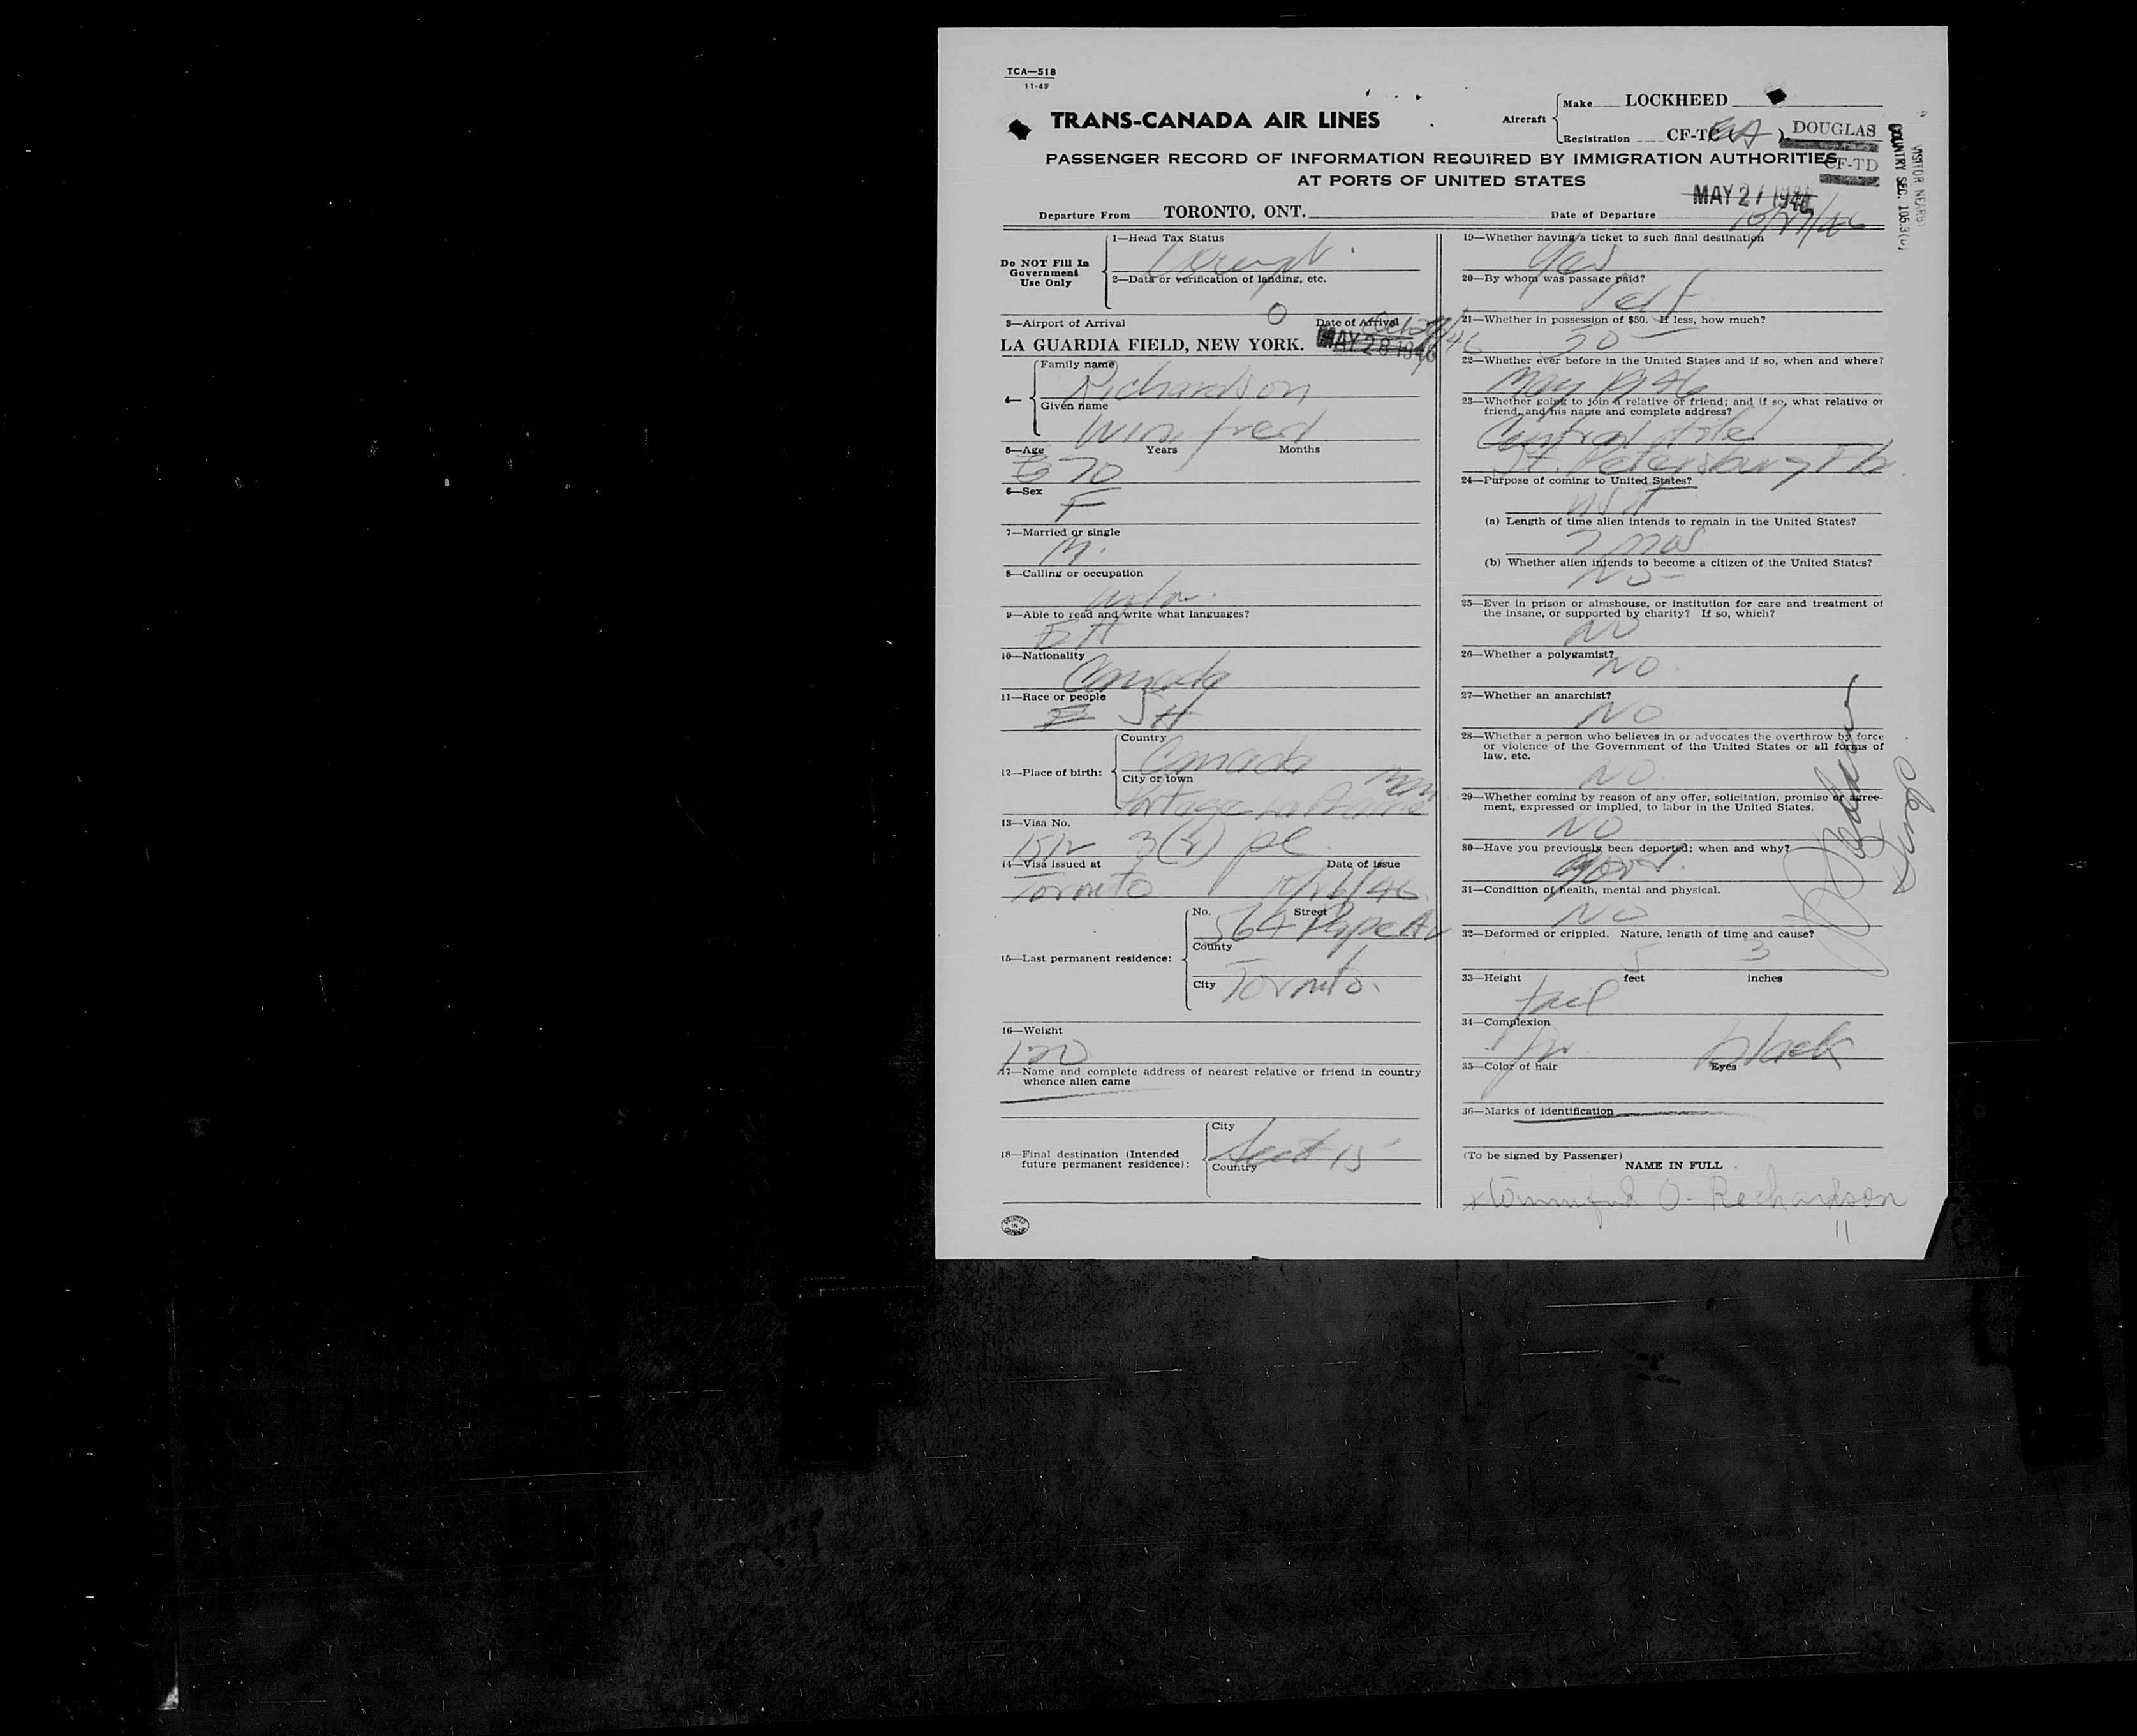 TCA—518
11-45
TRANS-CANADA AIR LINES
Aircraft
Make LOCKHEED
Registration CF-TC ( ) DOUGLAS
CF-TD
VISITOR NEARBY
COUNTRY SEC. 105.3(c)
PASSENGER RECORD OF INFORMATION REQUIRED BY IMMIGRATION AUTHORITIES
AT PORTS OF UNITED STATES
Departure From TORONTO, ONT. Date of Departure MAY 27 1946 10/27/46
Do NOT Fill In
Government
Use Only
1—Head Tax Status
2—Data or verification of landing, etc.
0
3—Airport of Arrival Date of Arrival
LA GUARDIA FIELD, NEW YORK. MAY 28 1946
4—
Family name
Richardson
Given name
Winifred
5—Age Years Months
70
6—Sex
F
7—Married or single
M.
8—Calling or occupation
9—Able to read and write what languages?
10—Nationality
Canada
11—Race or people
12—Place of birth:
Country
Canada
City or town
Portage La Prairie Man
13—Visa No.
1512 3(2) pl
14—Visa issued at Date of issue
Toronto 10/26/46
15—Last permanent residence:
No. Street
564 Pape Av
County
City Toronto.
16—Weight
120
17—Name and complete address of nearest relative or friend in country
whence alien came
18—Final destination (Intended
future permanent residence):
City
Country
PRINTED IN CANADA
19—Whether having a ticket to such final destination
Yes
20—By whom was passage paid?
Self
21—Whether in possession of $50. If less, how much?
50
22—Whether ever before in the United States and if so, when and where?
May 1946
23—Whether going to join a relative or friend; and if so, what relative or
friend, and his name and complete address?
Central Hotel
St. Petersburg Fla.
24—Purpose of coming to United States?
visit
(a) Length of time alien intends to remain in the United States?
mos
(b) Whether alien intends to become a citizen of the United States?
No
25—Ever in prison or almshouse, or institution for care and treatment of
the insane, or supported by charity? If so, which?
NO
26—Whether a polygamist?
NO
27—Whether an anarchist?
NO
28—Whether a person who believes in or advocates the overthrow by force
or violence of the Government of the United States or all forms of
law, etc.
NO
29—Whether coming by reason of any offer, solicitation, promise or agree-
ment, expressed or implied, to labor in the United States.
NO
30—Have you previously been deported; when and why?
31—Condition of health, mental and physical.
NO
32—Deformed or crippled. Nature, length of time and cause?
5 3
33—Height feet inches
34—Complexion
black
35—Color of hair Eyes
36—Marks of identification
(To be signed by Passenger)
NAME IN FULL
x Winnifred O. Richardson
11